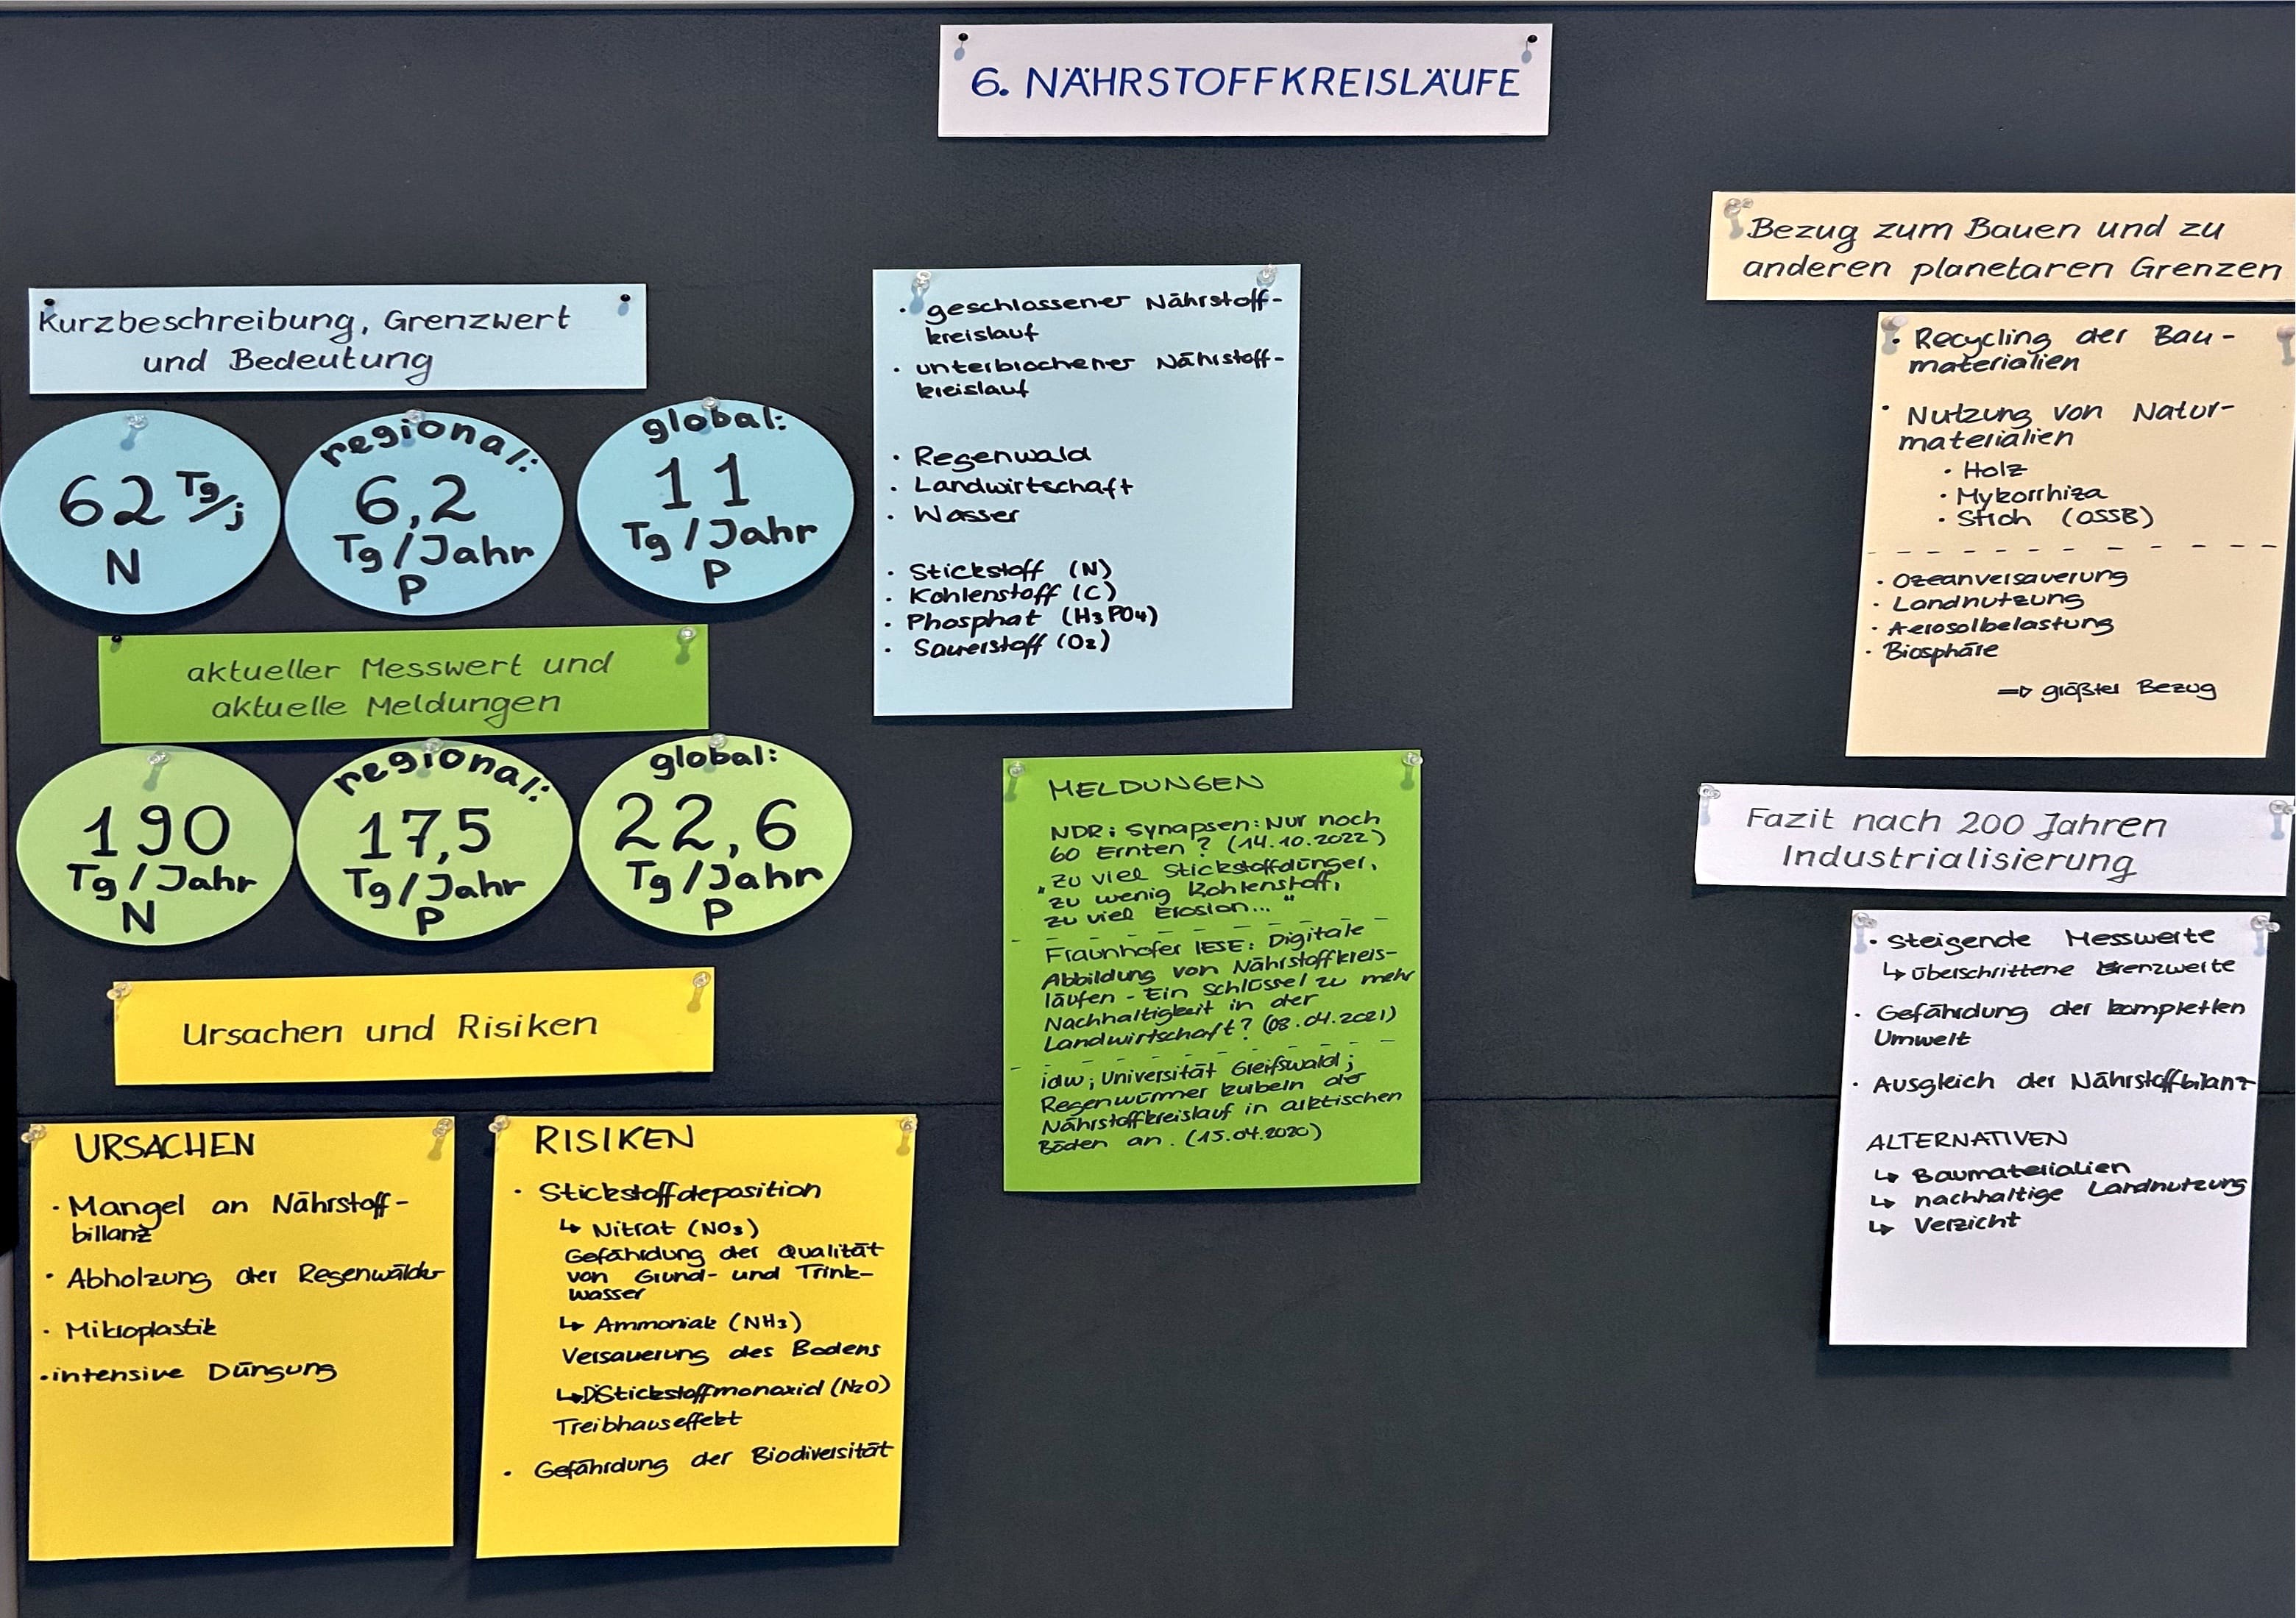 6. NÄHRSTOFFKREISLÄUFE
Kurzbeschreibung, Grenzwert
und Bedeutung
62 Tg/j
N
regional:
6,2
Tg/Jahr
P
global:
11
Tg/Jahr
P
· geschlossener Nährstoff-
kreislauf
· unterbrochener Nährstoff-
kreislauf
· Regenwald
· Landwirtschaft
· Wasser
· Stickstoff (N)
· Kohlenstoff (C)
· Phosphat (H₃PO₄)
· Sauerstoff (O₂)
aktueller Messwert und
aktuelle Meldungen
190
Tg/Jahr
N
regional:
17,5
Tg/Jahr
P
global:
22,6
Tg/Jahr
P
MELDUNGEN
NDR: Synapsen: Nur noch
60 Ernten? (14.10.2022)
„zu viel Stickstoffdünger,
zu wenig Kohlenstoff,
zu viel Erosion..."
Fraunhofer IESE: Digitale
Abbildung von Nährstoffkreis-
läufen - Ein Schlüssel zu mehr
Nachhaltigkeit in der
Landwirtschaft? (08.04.2021)
idw; Universität Greifswald;
Regenwürmer kurbeln den
Nährstoffkreislauf in arktischen
Böden an. (15.04.2020)
Ursachen und Risiken
URSACHEN
· Mangel an Nährstoff-
billanz
· Abholzung der Regenwälder
· Mikroplastik
· intensive Düngung
RISIKEN
· Stickstoffdeposition
↳ Nitrat (NO₃)
Gefährdung der Qualität
von Grund- und Trink-
wasser
↳ Ammoniak (NH₃)
Versauerung des Bodens
↳ DiStickstoffmonoxid (N₂O)
Treibhauseffekt
· Gefährdung der Biodiversität
Bezug zum Bauen und zu
anderen planetaren Grenzen
· Recycling der Bau-
materialien
· Nutzung von Natur-
materialien
· Holz
· Mykorrhiza
· Stroh (OSSB)
· Ozeanversauerung
· Landnutzung
· Aerosolbelastung
· Biosphäre
⇒ größter Bezug
Fazit nach 200 Jahren
Industrialisierung
· steigende Messwerte
↳ überschrittene Grenzwerte
· Gefährdung der kompletten
Umwelt
· Ausgleich der Nährstoffbilanz
ALTERNATIVEN
↳ Baumaterialien
↳ nachhaltige Landnutzung
↳ Verzicht